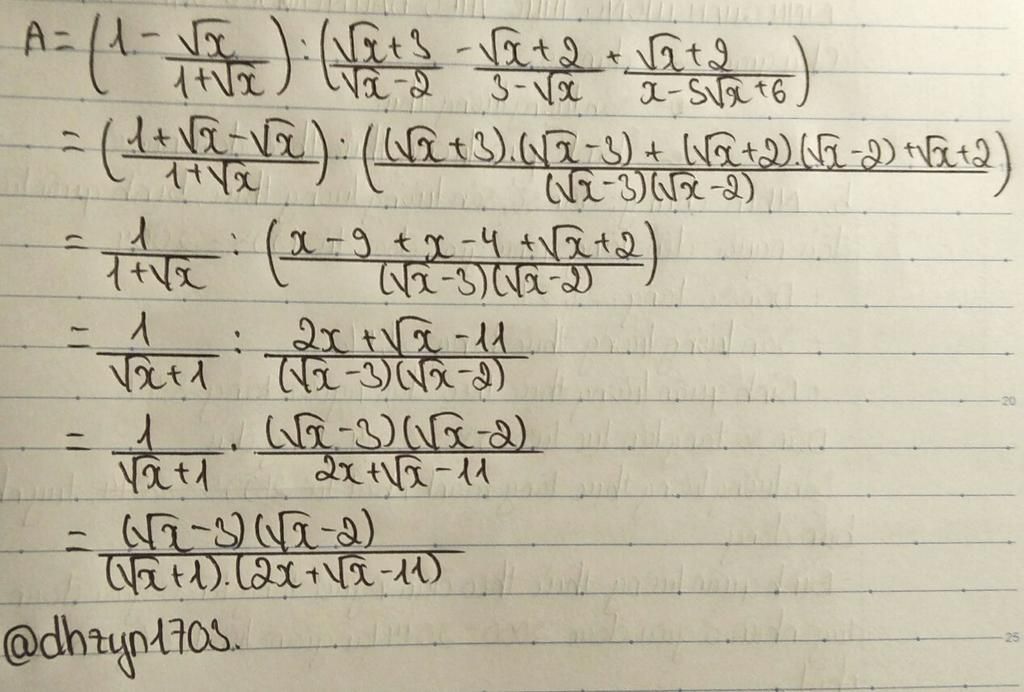 A = (1 - √x/(1+√x)) : ((√x+3)/(√x-2) - (√x+2)/(3-√x) + (√x+2)/(x-5√x+6))
= ((1+√x-√x)/(1+√x)) : (((√x+3).(√x-3) + (√x+2).(√x-2) + √x+2)/((√x-3)(√x-2)))
= 1/(1+√x) : ((x-9+x-4+√x+2)/((√x-3)(√x-2)))
= 1/(√x+1) : (2x+√x-11)/((√x-3)(√x-2))
= 1/(√x+1) . ((√x-3)(√x-2))/(2x+√x-11)
20
= ((√x-3)(√x-2))/((√x+1).(2x+√x-11))
@dhzyn1703.
25